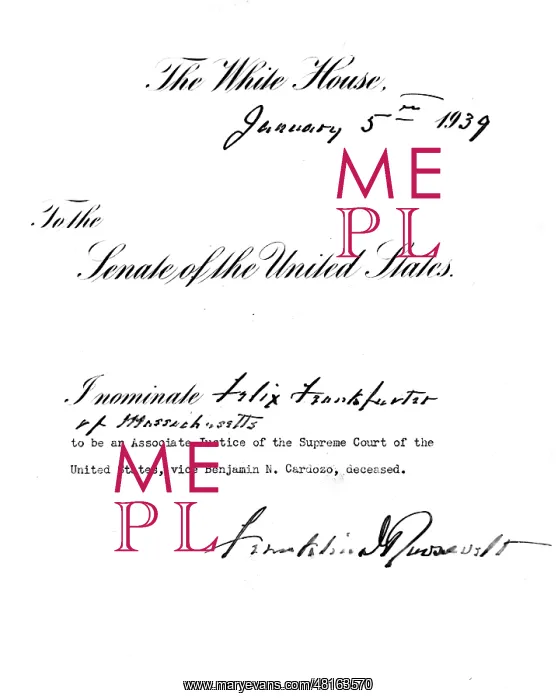 The White House,
January 5th 1939
ME
PL
To the
Senate of the United States.
I nominate Felix Frankfurter
of Massachusetts
to be an Associate Justice of the Supreme Court of the
United States, vice Benjamin N. Cardozo, deceased.
ME
PL
Franklin D Roosevelt
www.maryevans.com/48163570